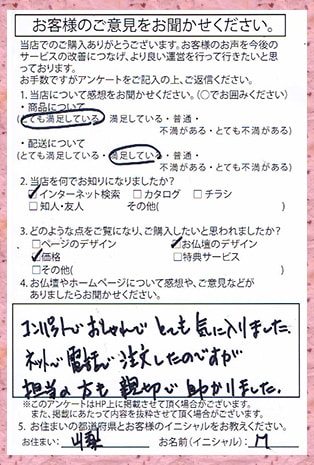 お客様のご意見をお聞かせください。
当店でのご購入ありがとうございます。お客様のお声を今後の
サービスの改善につなげ、より良い運営を行って行きたいと思
っております。
お手数ですがアンケートをご記入の上、ご返信ください。
1. 当店について感想をお聞かせください。(○でお囲みください)
・商品について
(とても満足している・満足している・普通・
不満がある・とても不満がある)
・配送について
(とても満足している・満足している・普通・
不満がある・とても不満がある)
2. 当店を何でお知りになりましたか?
☑インターネット検索 □カタログ □チラシ
□知人・友人 その他( )
3. どのような点をご覧になり、ご購入したいと思われましたか?
□ページのデザイン ☑お仏壇のデザイン
☑価格 □特典サービス
□その他( )
4. お仏壇やホームページについて感想や、ご意見などが
ありましたらお聞かせください。
コンパクトでおしゃれで とても気に入りました。
ネットで電話で注文したのですが
担当の方も親切で助かりました。
※このアンケートはHP上に掲載させて頂く場合がございます。
また、掲載にあたって内容を抜粋させて頂く場合がございます。
5. お住まいの都道府県とお客様のイニシャルをお教えください。
お住まい: 山梨 お名前(イニシャル): M